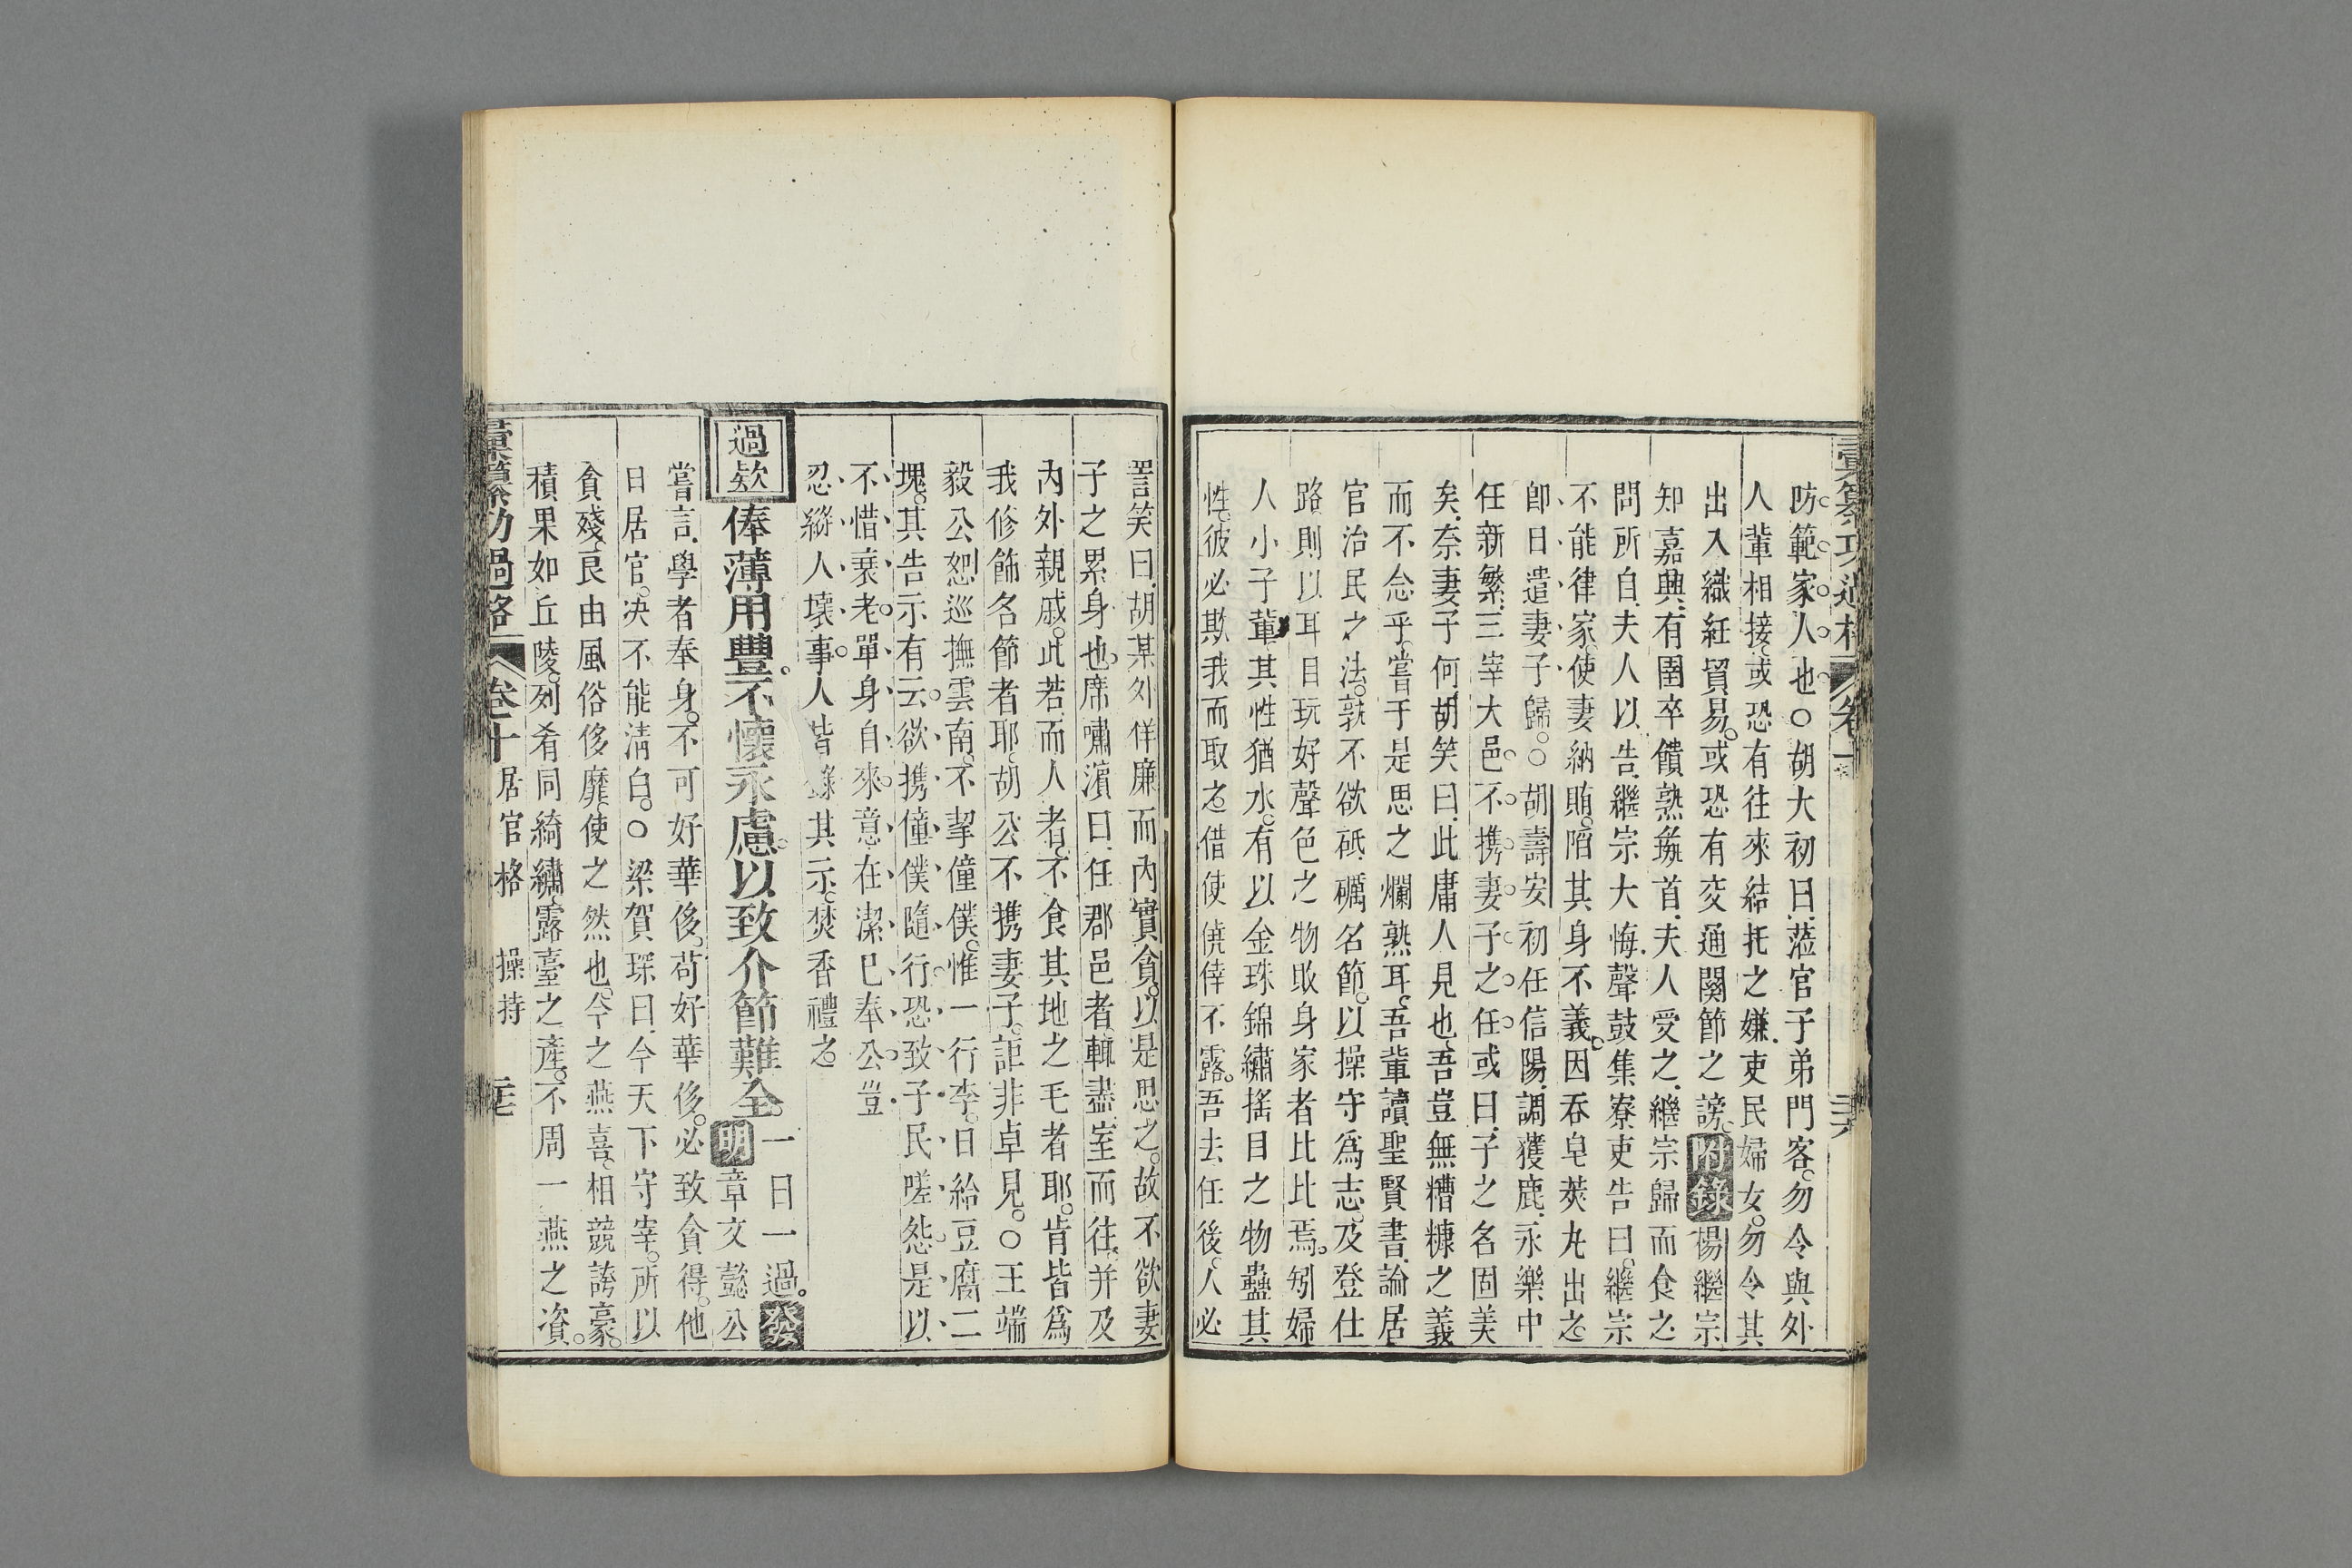 彚纂功過格 卷十
防範家人也○胡大初曰蒞官子弟門客勿令與外
人輩相接或恐有往來結托之嫌吏民婦女勿令其
出入織紝貿易或恐有交通關節之謗附錄楊繼宗
知嘉興有圉卒饋熟彘首夫人受之繼宗歸而食之
問所自夫人以告繼宗大悔聲鼓集寮吏告曰繼宗
不能律家使妻納賄陷其身不義因吞皂莢丸出之
卽日遣妻子歸○胡壽安初任信陽調獲鹿永樂中
任新繁三宰大邑不携妻子之任或曰子之名固美
矣奈妻子何胡笑曰此庸人見也吾豈無糟糠之義
而不念乎嘗于是思之爛熟耳吾輩讀聖賢書論居
官治民之法孰不欲砥礪名節以操守爲志及登仕
路則以耳目玩好聲色之物敗身家者比比焉矧婦
人小子輩其性猶水有以金珠錦繡搖目之物蠱其
性彼必欺我而取之借使僥倖不露吾去任後人必
詈笑曰胡某外佯廉而內實貪以是思之故不欲妻
子之累身也席嘯濵曰任郡邑者輙盡室而往并及
內外親戚此若而人者不食其地之毛者耶肯皆爲
我修飾名節者耶胡公不携妻子詎非卓見○王端
毅公恕巡撫雲南不挈僮僕惟一行李日給豆腐二
塊其告示有云欲携僮僕隨行恐致子民嗟怨是以
不惜衰老單身自來意在潔巳奉公豈
忍縱人壞事人皆錄其示焚香禮之
過欵俸薄用豐不懷永慮以致介節難全一日一過發
明章文懿公
嘗言學者奉身不可好華侈苟好華侈必致貪得他
日居官决不能淸白○梁賀琛曰今天下守宰所以
貪殘良由風俗侈靡使之然也今之燕喜相競誇豪
積果如丘陵列肴同綺繡露臺之產不周一燕之資
彚纂功過格 卷十 居官格 操持